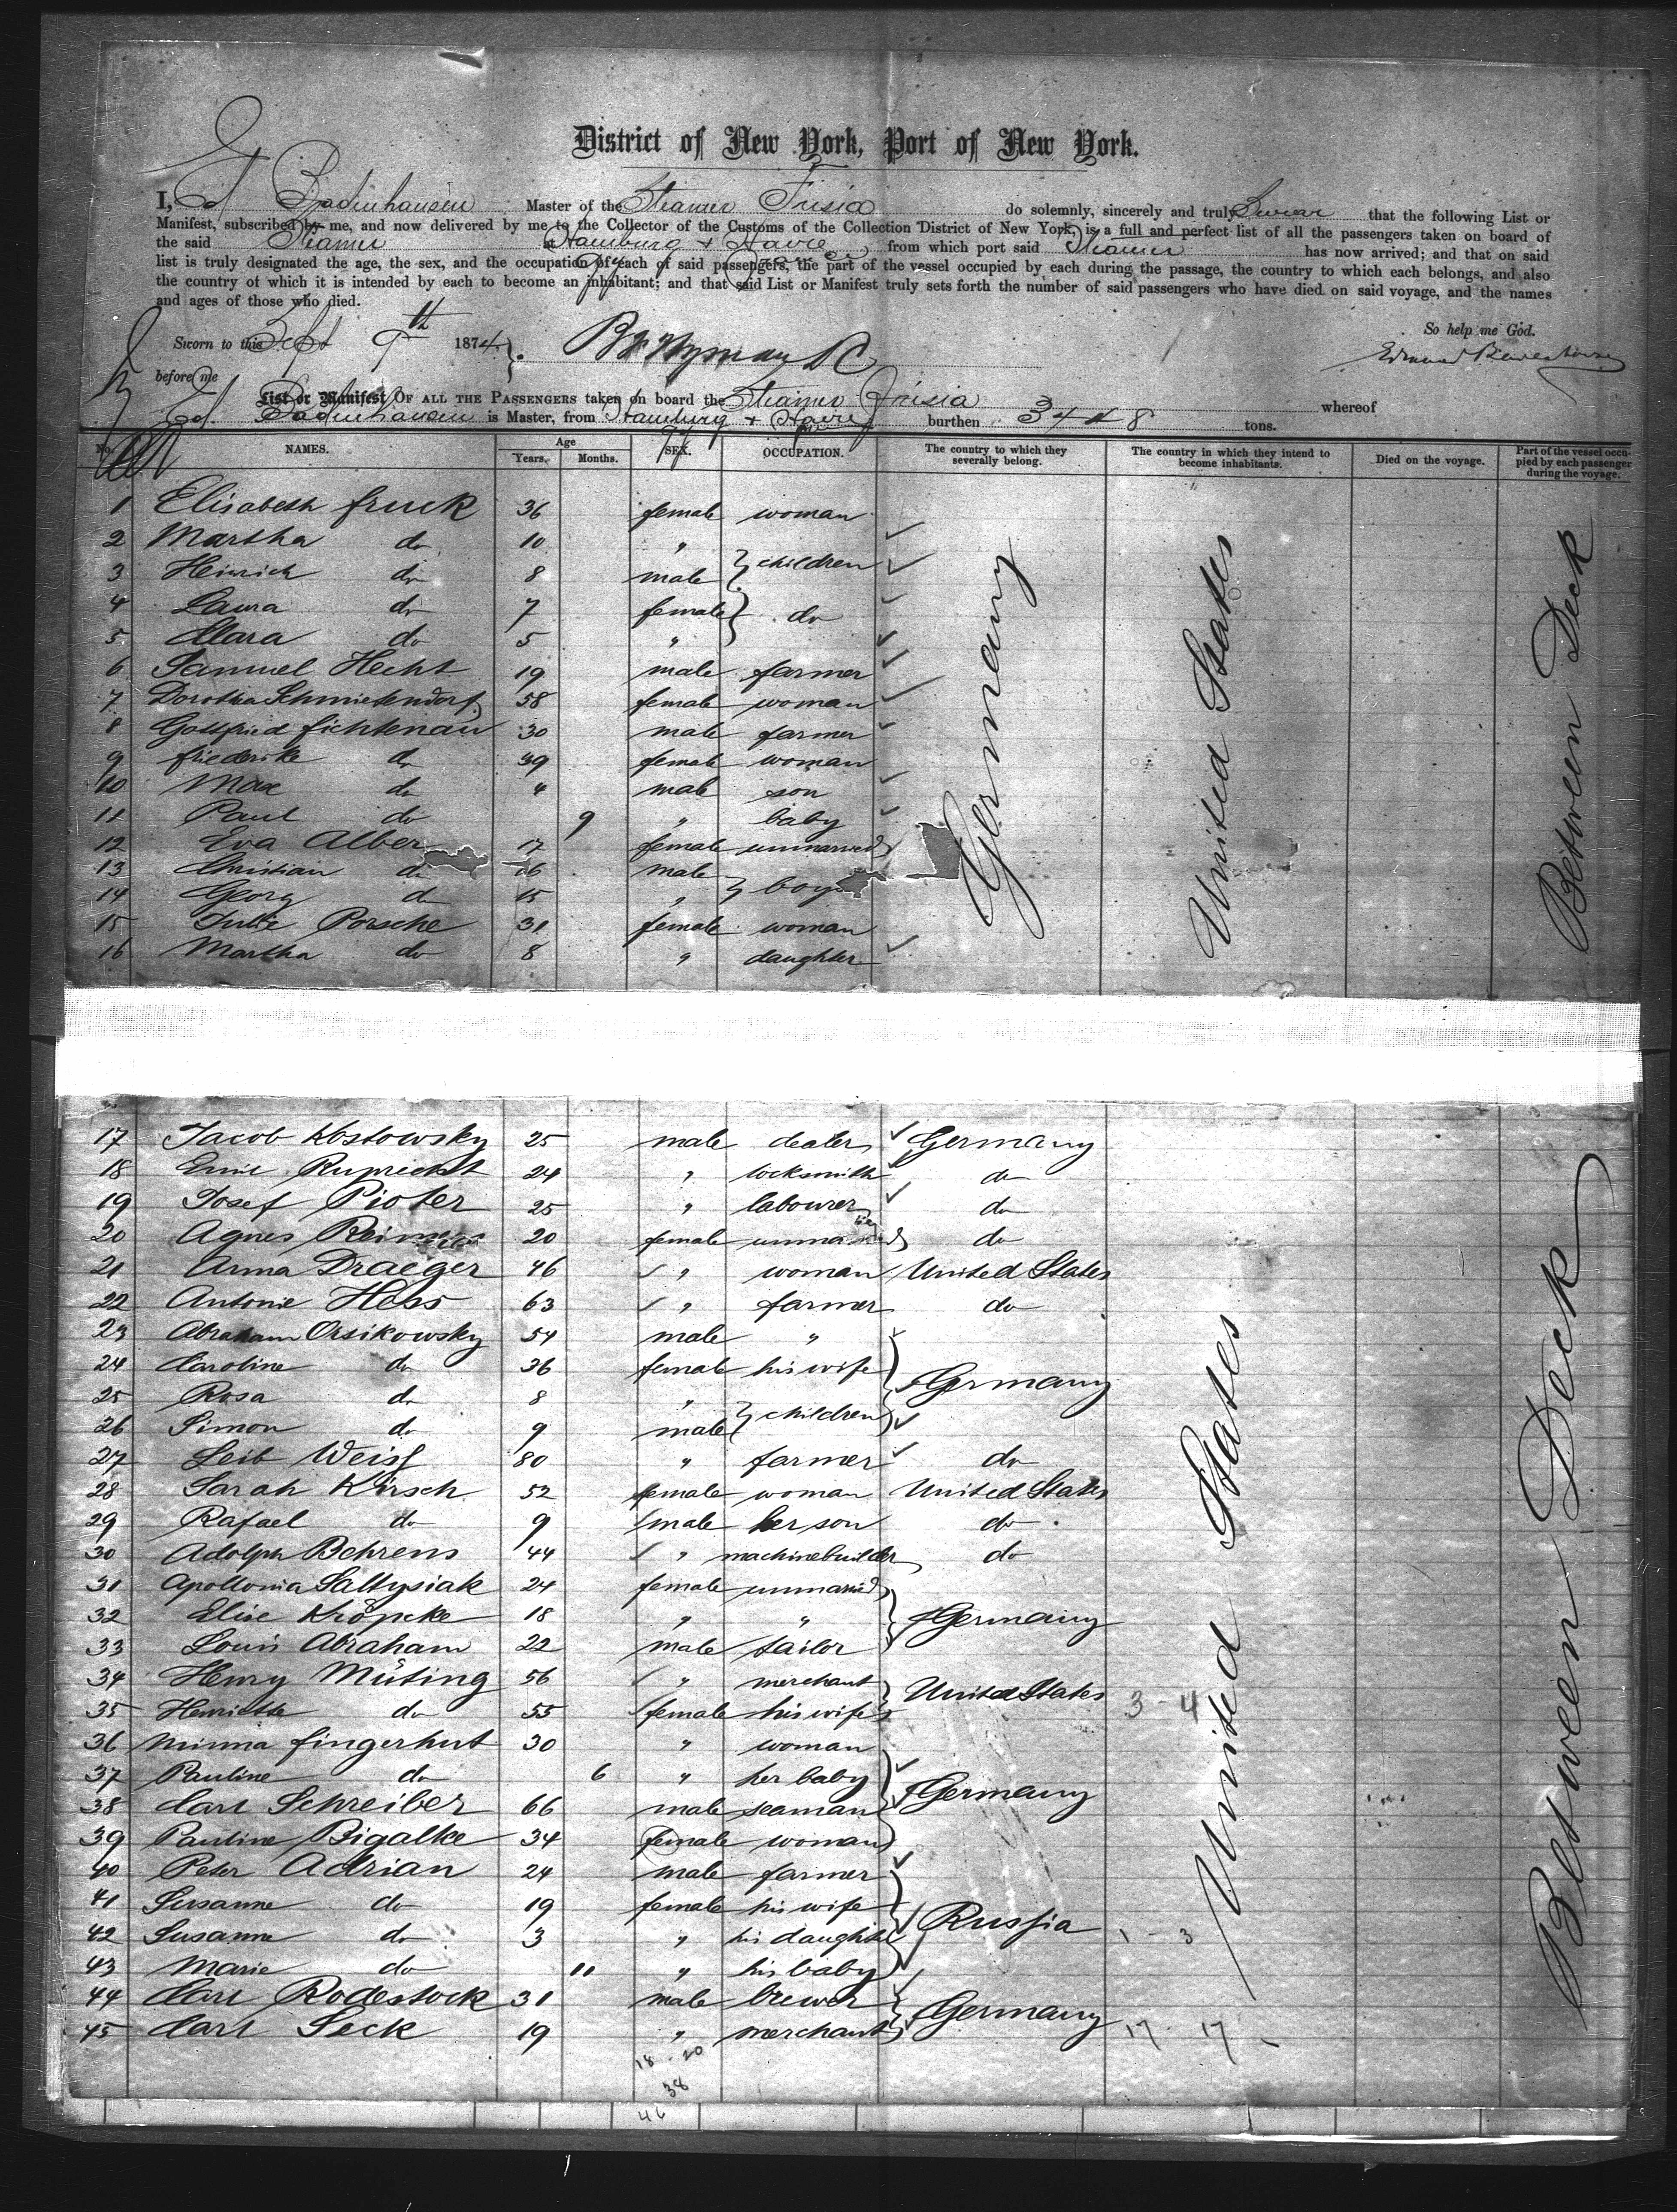 District of New York, Port of New York.
I, Ed Badenhausen Master of the Steamer Frisia do solemnly, sincerely and truly Swear that the following List or
Manifest, subscribed by me, and now delivered by me to the Collector of the Customs of the Collection District of New York, is a full and perfect list of all the passengers taken on board of
the said Steamer Hamburg + Havre, from which port said Steamer has now arrived; and that on said
list is truly designated the age, the sex, and the occupation of each of said passengers, the part of the vessel occupied by each during the passage, the country to which each belongs, and also
the country of which it is intended by each to become an inhabitant; and that said List or Manifest truly sets forth the number of said passengers who have died on said voyage, and the names
and ages of those who died.
So help me God.
Sworn to this Sept 9th 1874
before me
List or Manifest OF ALL THE PASSENGERS taken on board the Steamer Frisia whereof
Ed. Badenhausen is Master, from Hamburg + Havre burthen 34 8 tons.
No. NAMES. Age Years. Months. SEX. OCCUPATION. The country to which they severally belong. The country in which they intend to become inhabitants. Died on the voyage. Part of the vessel occupied by each passenger during the voyage.
1 Elisabeth fruck 36 female woman
2 Martha do 10 "
3 Heinrich do 8 male } children
4 Laura do 7 female
5 Clara do 5 " } do
6 Samuel Hecht 19 male farmer
7 Dorothea Schmietendorf 58 female woman
8 Gottfried fichtenau 30 male farmer
9 friederike do 39 female woman
10 Max do 4 male son
11 Paul do 9 " baby
12 Eva Alber 17 female unmarried
13 Christian do 16 male
14 Georg do 15 " } boys
15 Julie Porsche 31 female woman
16 Martha do 8 " daughter
Germany
United States
Between Deck
17 Jacob Kostowsky 25 male dealer Germany
18 Emil Ruprecht 24 " locksmith do
19 Josef Pioter 25 " labourer do
20 Agnes 20 female do
21 Anna Draeger 46 " woman United States
22 Antonie Hess 63 " farmer do
23 Abraham Orsikowsky 54 male "
24 Caroline do 36 female his wife
25 Rosa do 8 " Germany
26 Simon do 9 male } children
27 Leib Weiss 80 " farmer do
28 Sarah Kirsch 52 female woman United States
29 Rafael do 9 male her son do
30 Adolph Behrens 44 " machinebuilder do
31 Apollonia Saltysiak 24 female unmarried
32 Elise Kröpcke 18 " " Germany
33 Louis Abraham 22 male tailor
34 Henry Müting 56 " merchant
35 Henriette do 55 female his wife United States 3 - 4
36 Minna fingerhut 30 " woman
37 Pauline do 6 " her baby
38 Carl Schreiber 66 male seaman Germany
39 Pauline Bigalke 34 female woman
40 Peter Adrian 24 male farmer
41 Susanne do 19 female his wife
42 Susanna do 3 " his daughter Russia 1 - 3
43 Marie do 11 " his baby
44 Carl Rodestock 31 male brewer
45 Carl Seck 19 " merchant Germany 17 - 17
United States
Between Deck
18 - 20
38
46